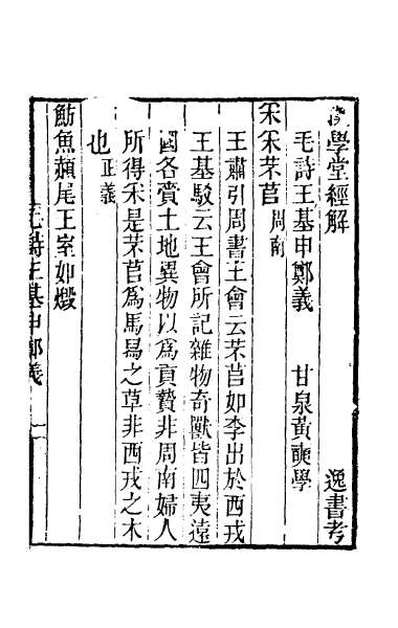 漢學堂經解 逸書考
毛詩王基申鄭義 甘泉黃奭學
采采芣苢周南
王肅引周書王會云芣苢如李出於西戎
王基駁云王會所記雜物奇獸皆四夷遠
國各賷土地異物以爲貢贄非周南婦人
所得采是芣苢爲馬舄之草非西戎之木
也正義
魴魚赬尾王室如燬
毛詩王基申鄭義 一